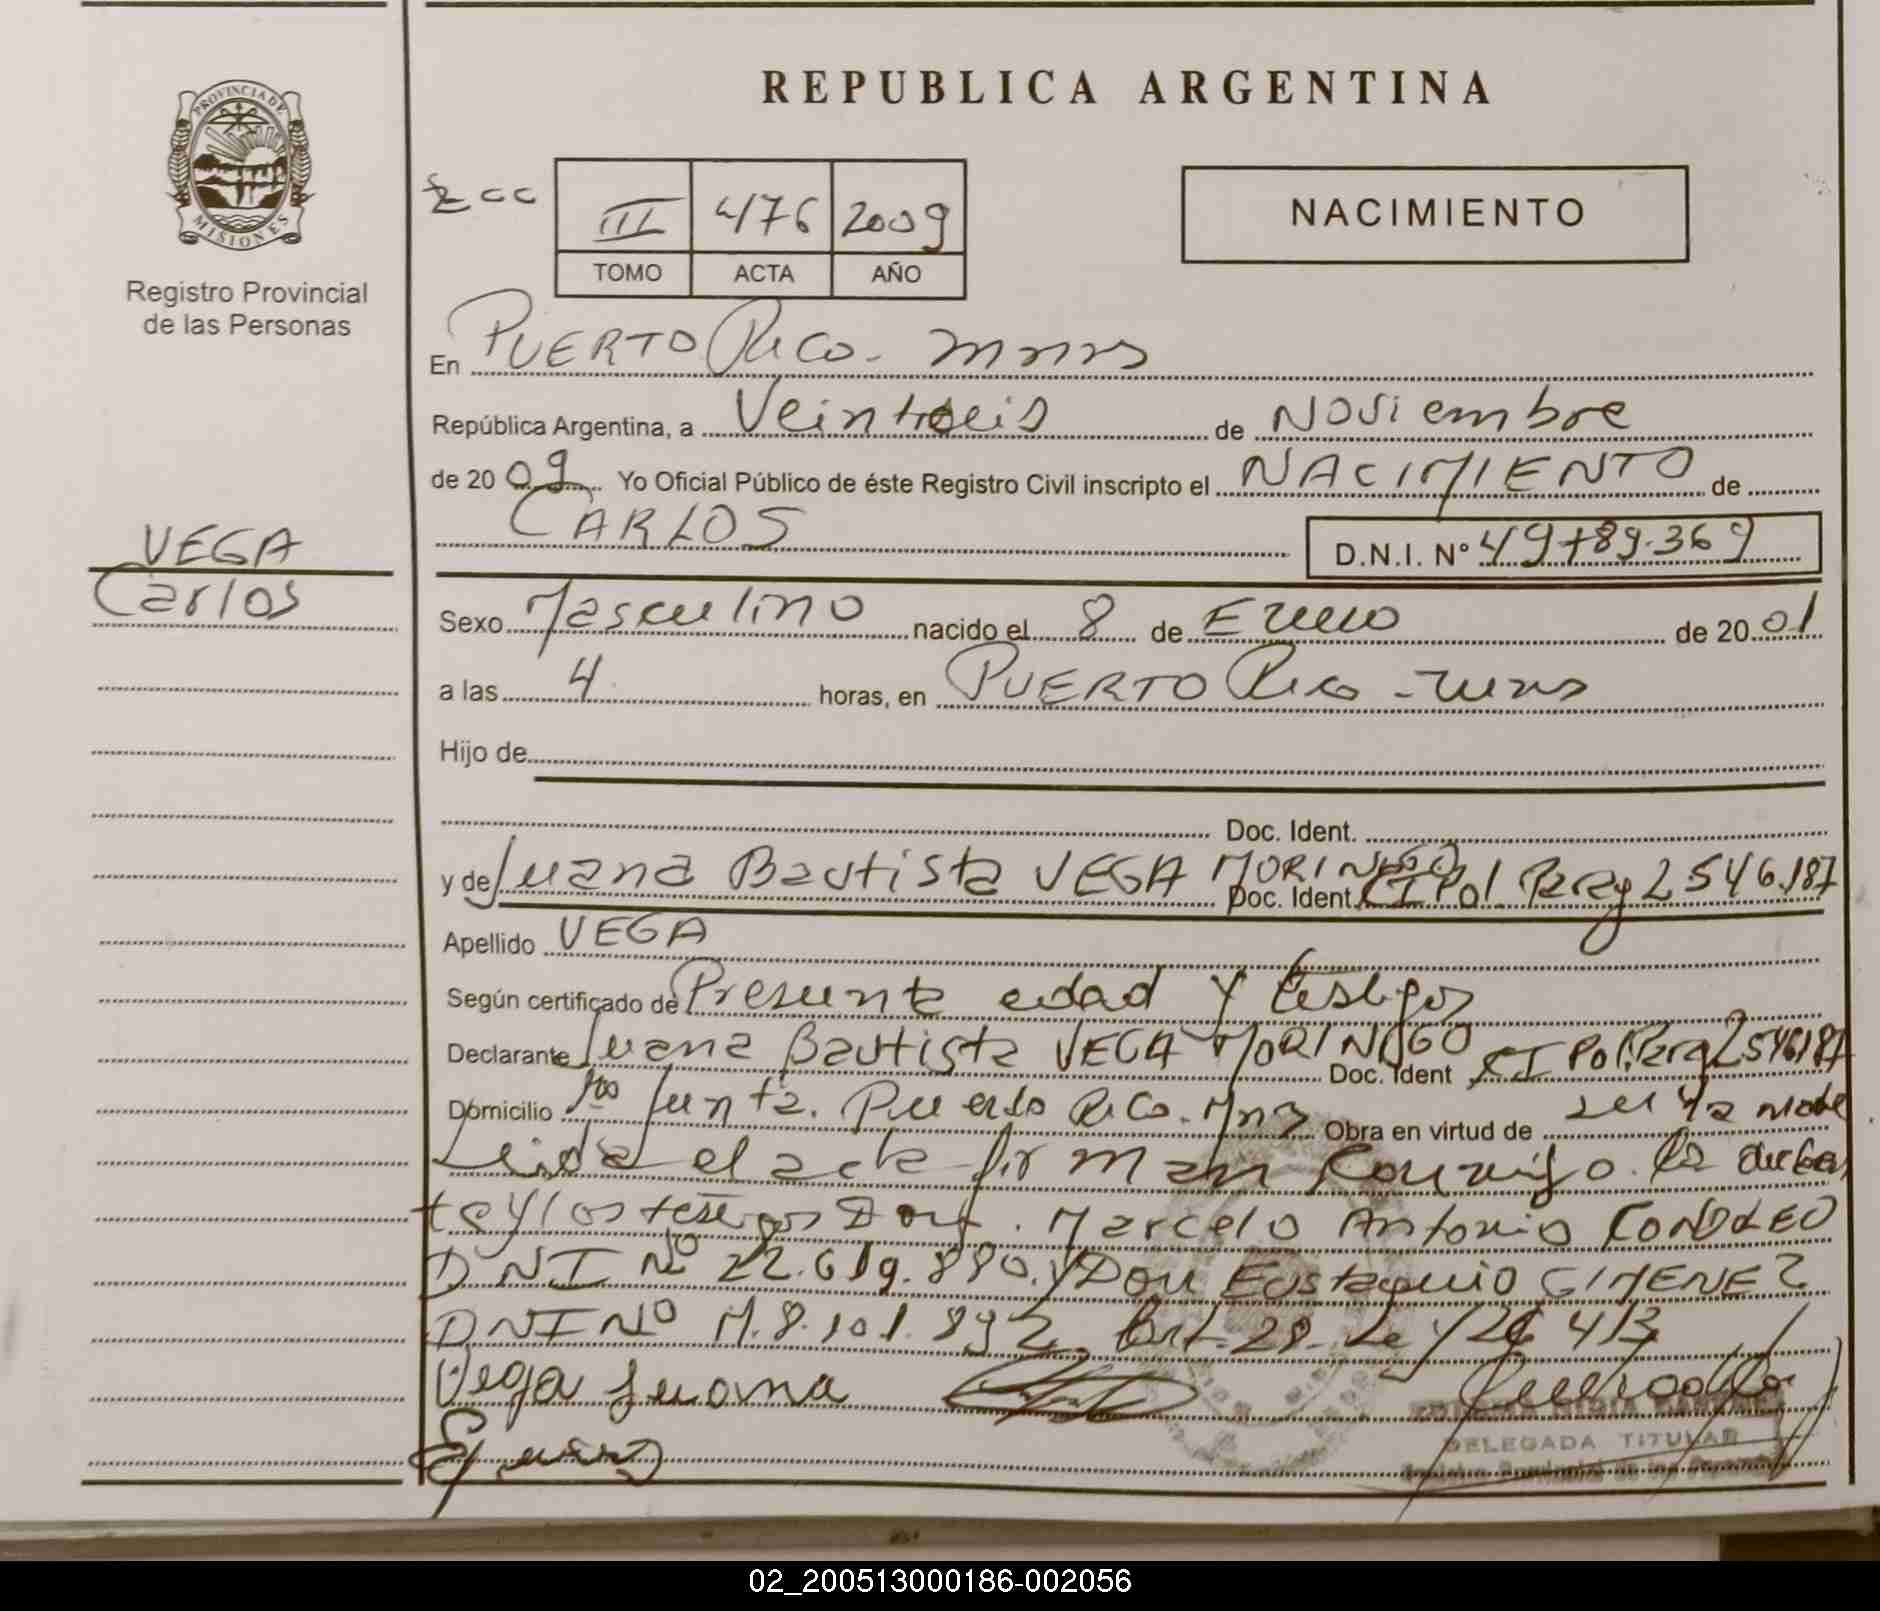 REPUBLICA ARGENTINA
PROVINCIA DE
MISIONES
Registro Provincial
de las Personas
III 476 2009
TOMO ACTA AÑO
NACIMIENTO
En PUERTO Rico - Mnes
República Argentina, a Veintiseis de Noviembre
de 2009 Yo Oficial Público de éste Registro Civil inscripto el NACIMIENTO de
CARLOS D.N.I. N° 49789.369
VEGA
Carlos
Sexo Masculino nacido el 8 de Enero de 2001
a las 4 horas, en PUERTO Rico - Mnes
Hijo de
Doc. Ident.
y de Juana Bautista VEGA MORINIGO Doc. Ident. CI Pol Parag 2546.187
Apellido VEGA
Según certificado de Presunta edad y testigos
Declarante Juana Bautista VEGA MORINIGO Doc. Ident CI Pol. Parag 2546187
Domicilio 1ra Junta. Puerto Rico. Mns Obra en virtud de ser la madre
Leida el acta firman conmigo la declaran
te y los testigos Don. Marcelo Antonio
DNI Nº 22.619.880. y Don Eustaquio GIMENEZ
DNI Nº M.8.101.892. Art. 28. Ley 26413
Vega Juana
DELEGADA TITULAR
Registro Provincial de las Personas
02_200513000186-002056